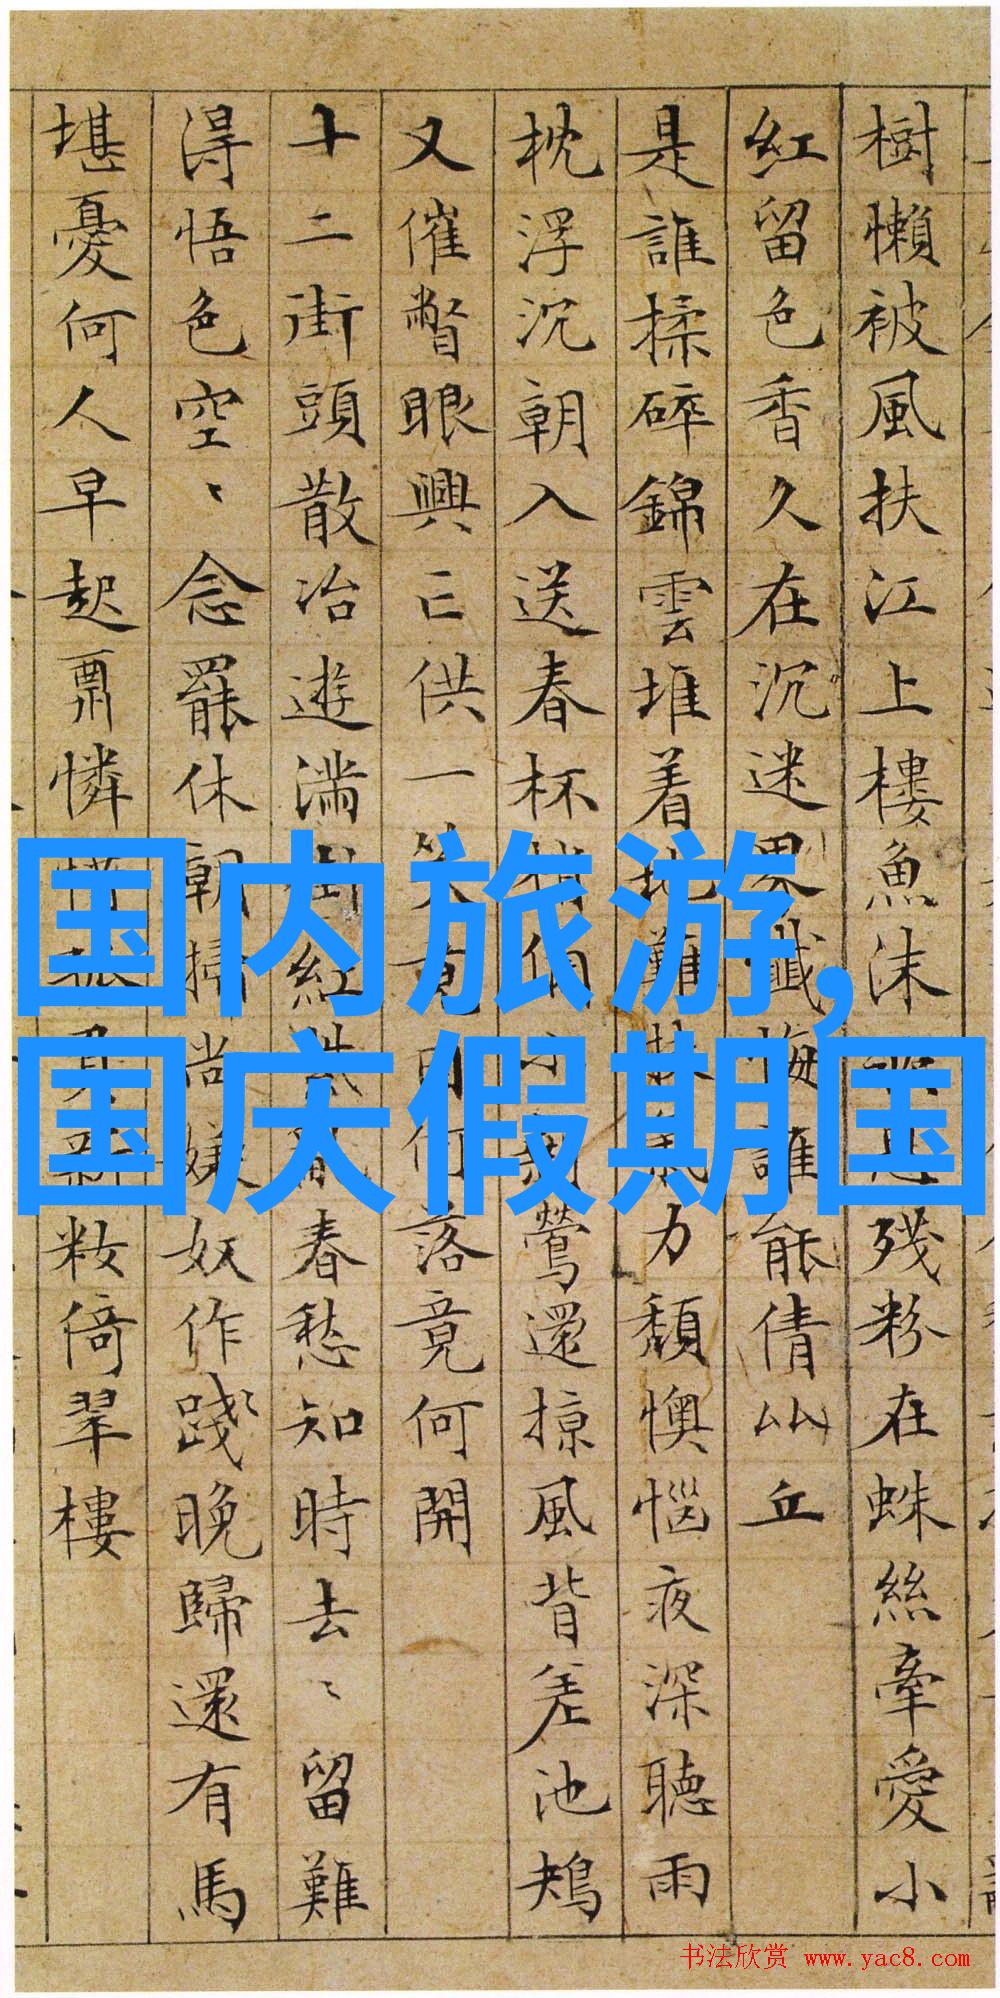 樹懶被風扶江上樓魚沫
殘粉在蛛絲牽愛小
紅留色香久在沉迷
懺悔誰能倩比丘
是誰揉碎錦雲堆着地難
力頹懊惱夜深聽雨
枕浮沉朝入送春杯
鶯還掠風背差池鴂
又催瞥眼興亡供一笑
落竟何開
十二街頭散冶遊滿街紅
春愁知時去〻留難
得悟色空〻念罷休朝掃
尚嫌奴作踐〻晚歸還有馬
堪憂何人早起票憐惜
粧倚翠樓
国内旅游,
国庆假期国
书法欣赏 www.yac8.com